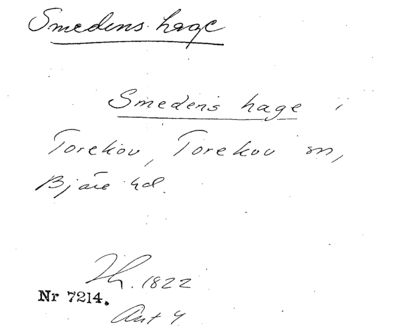 Smedens hage
Smedens hage i
Torekov, Torekov sn,
Bjäre hd.
1822
Nr 7214.
Art 4